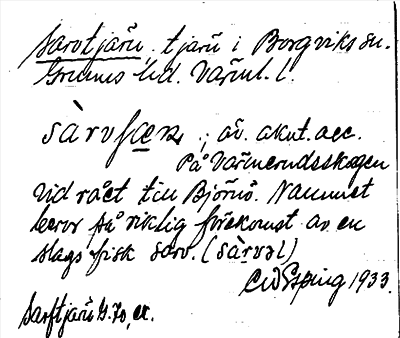 Sarvtjärn, tjärn i Borgviks sn.
Grums hd. Värml. l.
sàrvɟæɳ ; äv. akut. acc.
På Värmlandsskogen
vid rået till Björnö. Namnet
beror på riklig förekomst av en
slags fisk sarv. (sàrvəl)
CW Esping 1933.
Sarftjärn G. Jo, ek.